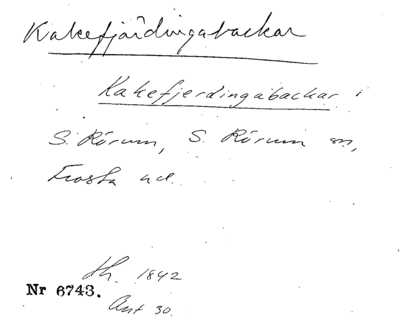 Kakefjärdingabackar
Kakefjerdingabackar i
S. Rörum, S. Rörum sn,
Frosta hd.
th. 1842
Nr 6743.
Ant 30.